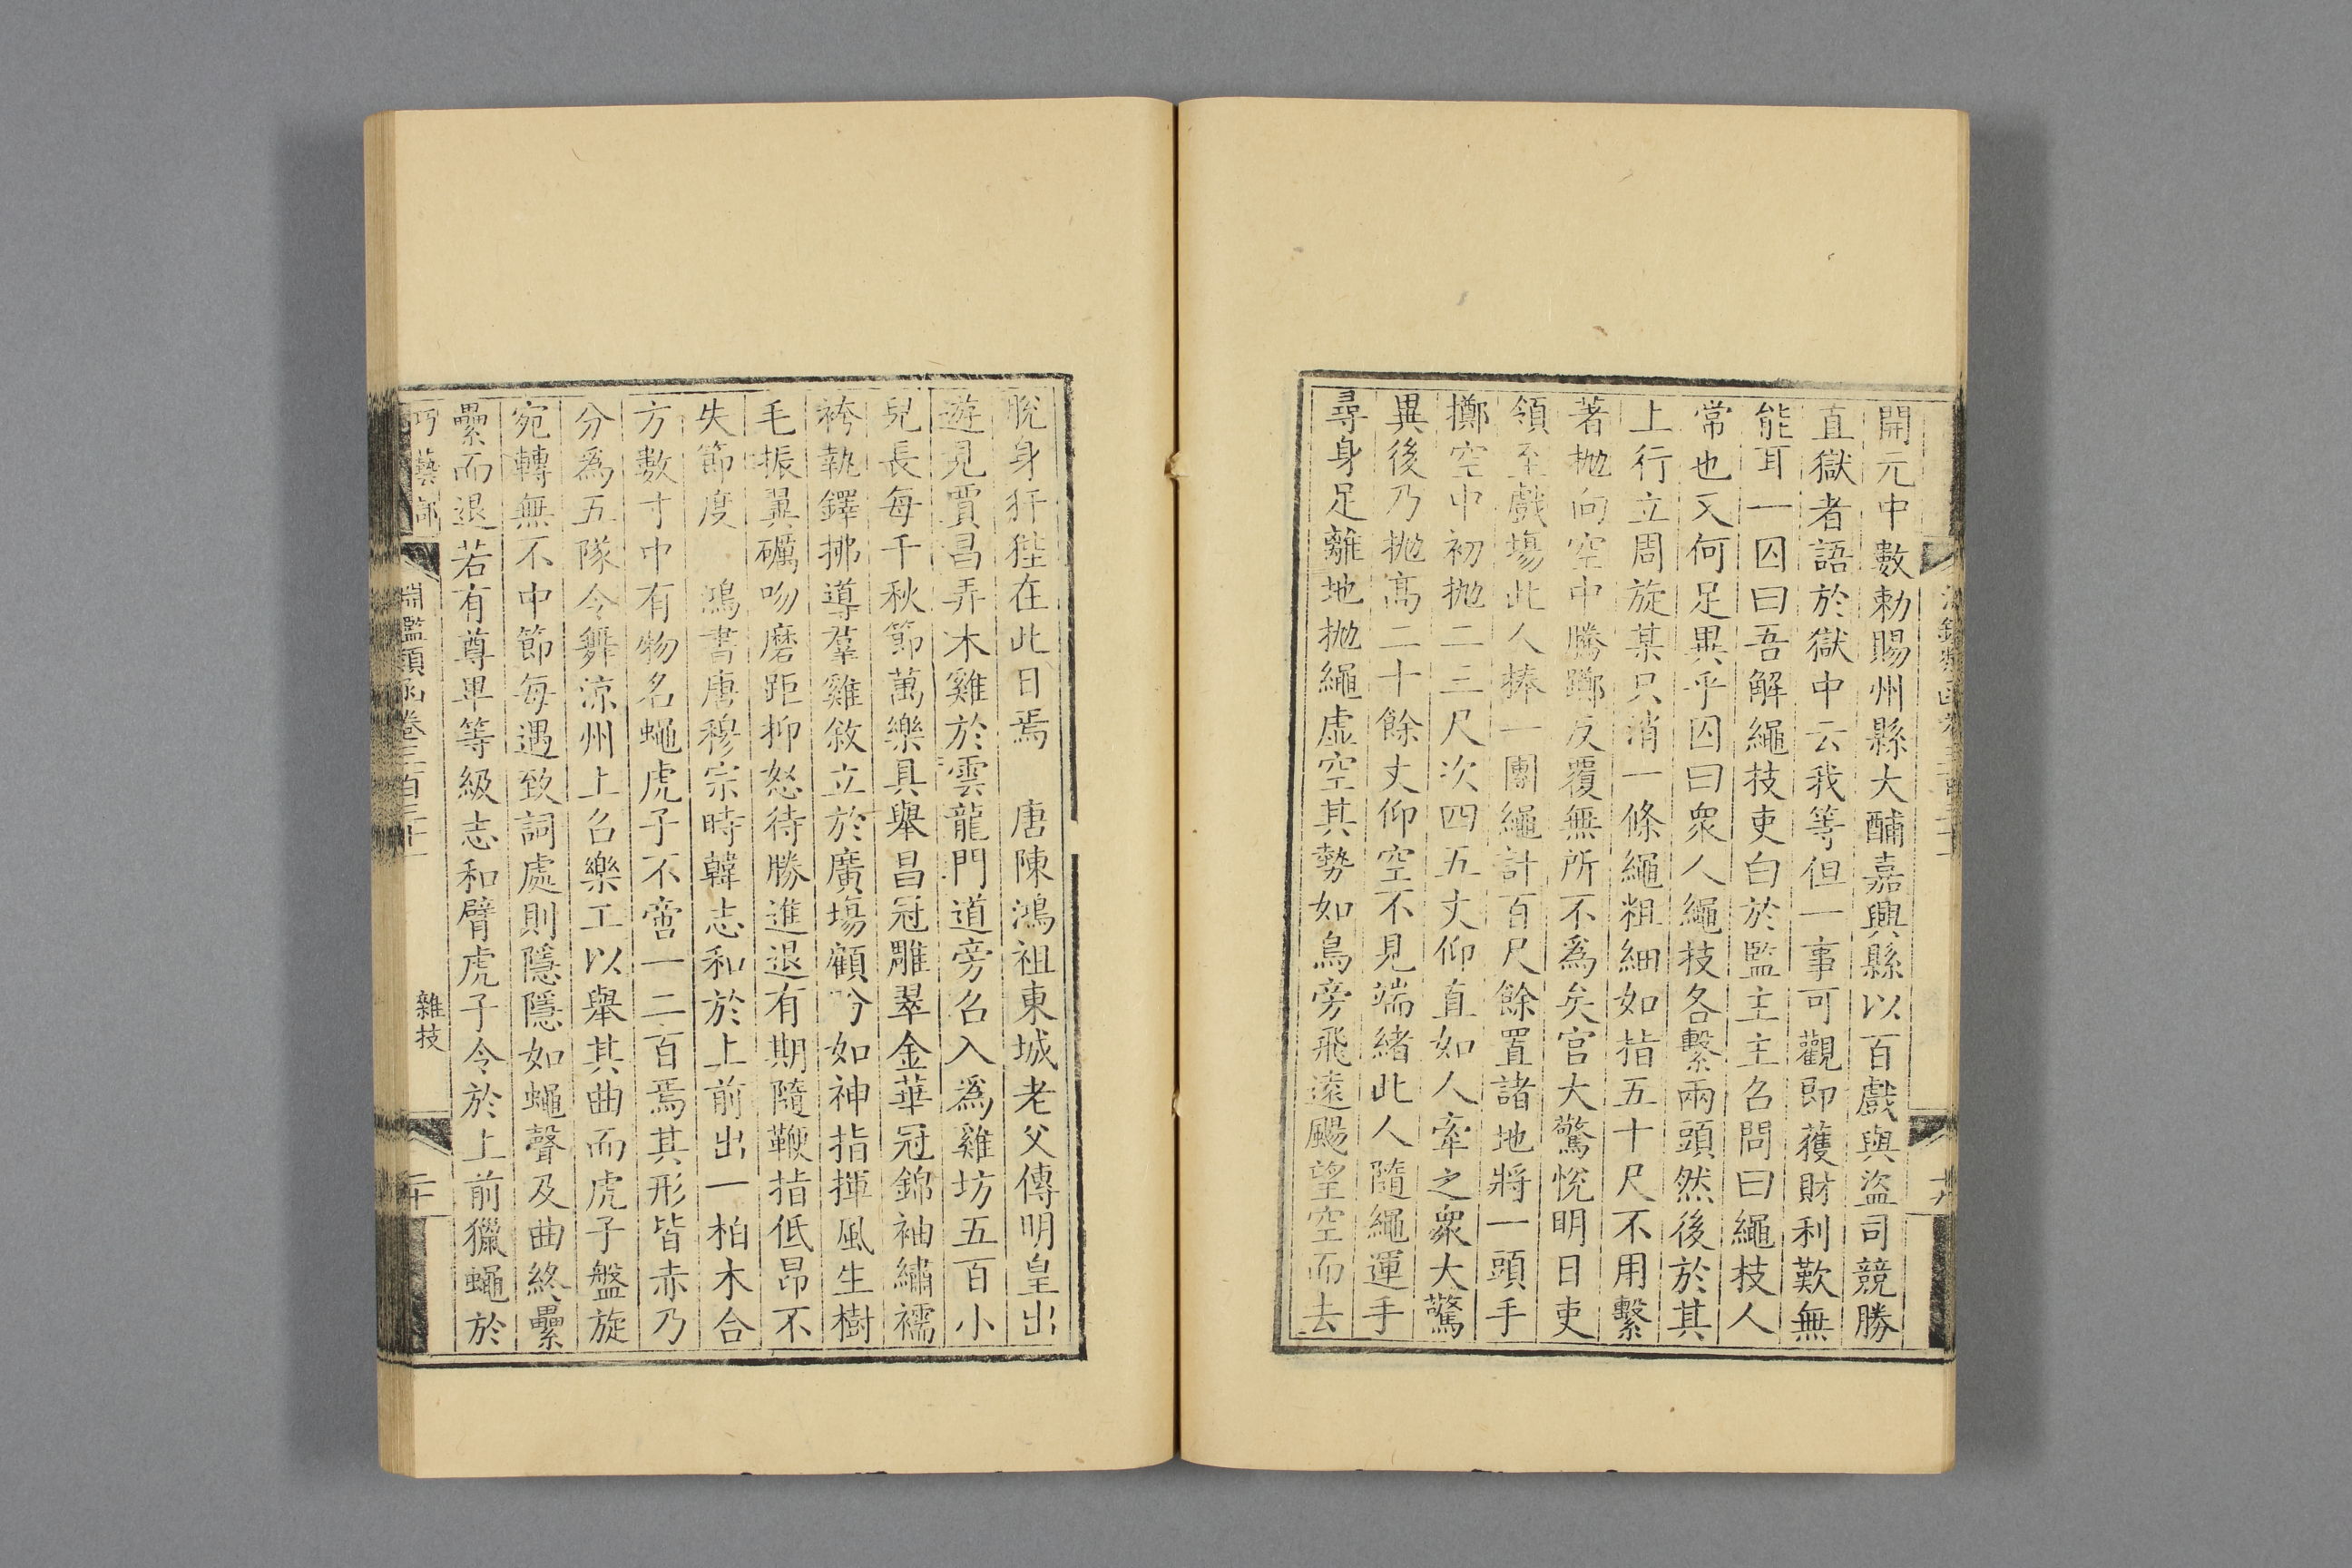 開元中數勅賜州縣大酺嘉興縣以百戲與盜司競勝
直獄者語於獄中云我等但一事可觀即獲財利歎無
能耳一囚曰吾解繩技吏白於監主主召問曰繩技人
常也又何足異乎囚曰衆人繩技各繫兩頭然後於其
上行立周旋某只消一條繩粗細如指五十尺不用繫
著抛向空中騰躑反覆無所不爲矣官大驚悅明日吏
領至戲塲此人捧一團繩計百尺餘置諸地將一頭手
擲空中初抛二三尺次四五丈仰直如人牽之衆大驚
異後乃抛高二十餘丈仰空不見端緒此人隨繩運手
尋身足離地抛繩虛空其勢如鳥旁飛遠颺望空而去
脫身犴狴在此日焉　唐陳鴻祖東城老父傳明皇出
遊見賈昌弄木雞於雲龍門道旁召入爲雞坊五百小
兒長每千秋節萬樂具舉昌冠雕翠金華冠錦袖繡襦
袴執鐸拂導羣雞敘立於廣塲顧盻如神指揮風生樹
毛振翼礪吻磨距抑怒待勝進退有期隨鞭指低昂不
失節度　鴻書唐穆宗時韓志和於上前出一柏木合
方數寸中有物名蠅虎子不啻一二百焉其形皆赤乃
分爲五隊令舞涼州上召樂工以舉其曲而虎子盤旋
宛轉無不中節每遇致詞處則隱隱如蠅聲及曲終纍
纍而退若有尊卑等級志和臂虎子令於上前獵蠅於
巧藝部　淵鑑類函卷三百三十一　雜技　二十